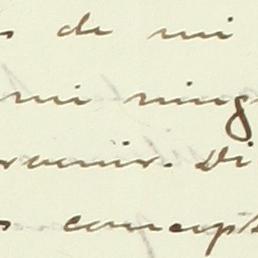 s de mi
mi ning
rvenir. Di
s concept